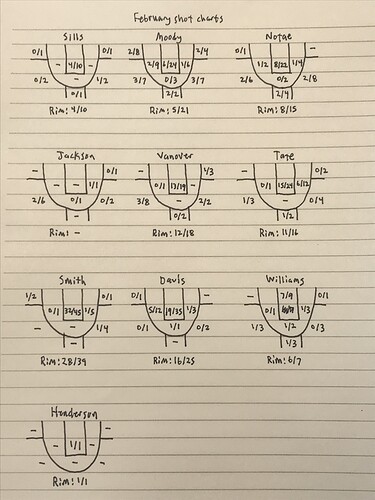 February shot charts
Sills Moody Notae
0/1 0/1 2/8 2/4 0/1 -
- 4/10 - 2/9 6/24 1/6 1/2 8/22 1/4
0/2 - 1/2 3/7 0/3 3/7 2/6 0/2 2/8
0/1 2/2 2/4
Rim: 4/10 Rim: 5/21 Rim: 8/15
Jackson Vanover Tate
- - - 1/3 - 0/2
- - 1/1 0/1 17/19 - 0/1 15/24 6/12
2/6 0/1 0/2 3/8 - 2/2 1/3 - 0/4
- 0/2 1/2
Rim: - Rim: 12/18 Rim: 11/16
Smith Davis Williams
1/2 0/1 0/1 - - 7/9 0/1
0/1 32/45 1/5 5/12 19/35 1/3 0/1 1/3
- - 1/4 0/1 1/1 0/2 1/3 1/2 0/3
- - 1/3
Rim: 28/39 Rim: 16/25 Rim: 6/7
Henderson
- -
- 1/1 -
- - -
-
Rim: 1/1